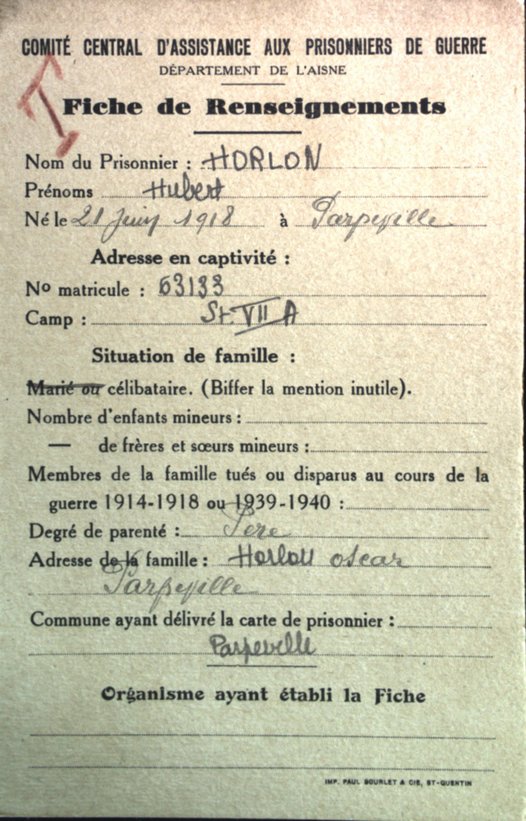 COMITÉ CENTRAL D'ASSISTANCE AUX PRISONNIERS DE GUERRE
DÉPARTEMENT DE L'AISNE
Fiche de Renseignements
Nom du Prisonnier : HORLON
Prénoms Hubert
Né le 21 juin 1918 à Parpeville
Adresse en captivité :
No matricule : 63133
Camp : St. VII A
Situation de famille :
Marié ou célibataire. (Biffer la mention inutile).
Nombre d'enfants mineurs :
— de frères et sœurs mineurs :
Membres de la famille tués ou disparus au cours de la
guerre 1914-1918 ou 1939-1940 :
Degré de parenté : Père
Adresse de la famille : Horlon oscar
Parpeville
Commune ayant délivré la carte de prisonnier :
Parpeville
Organisme ayant établi la Fiche
IMP. PAUL BOURLET & CIE, ST-QUENTIN